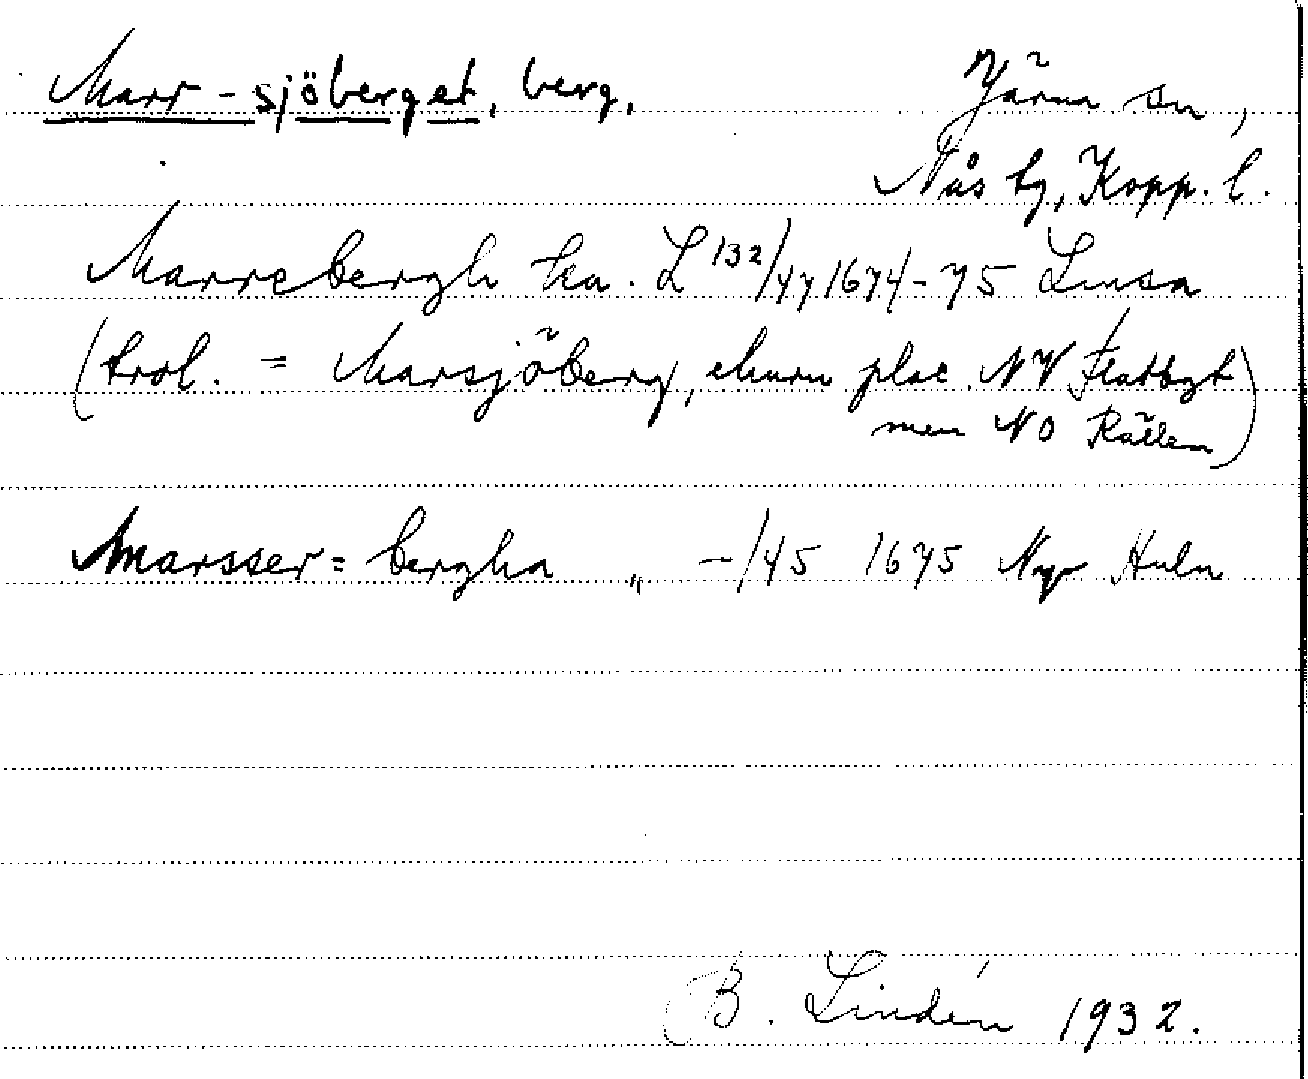 Marr-sjöberget, berg, Järna sn,
Nås tg, Kopp. l.
Marrebergh ka. L 132/47 1674-75 Limsa
(trol. = Marsjöberg, ehuru plac. NV Flatbgt
men NO Rällen)
Marsser= bergha „ -/45 1675 Myr Huln
B. Lindén 1932.